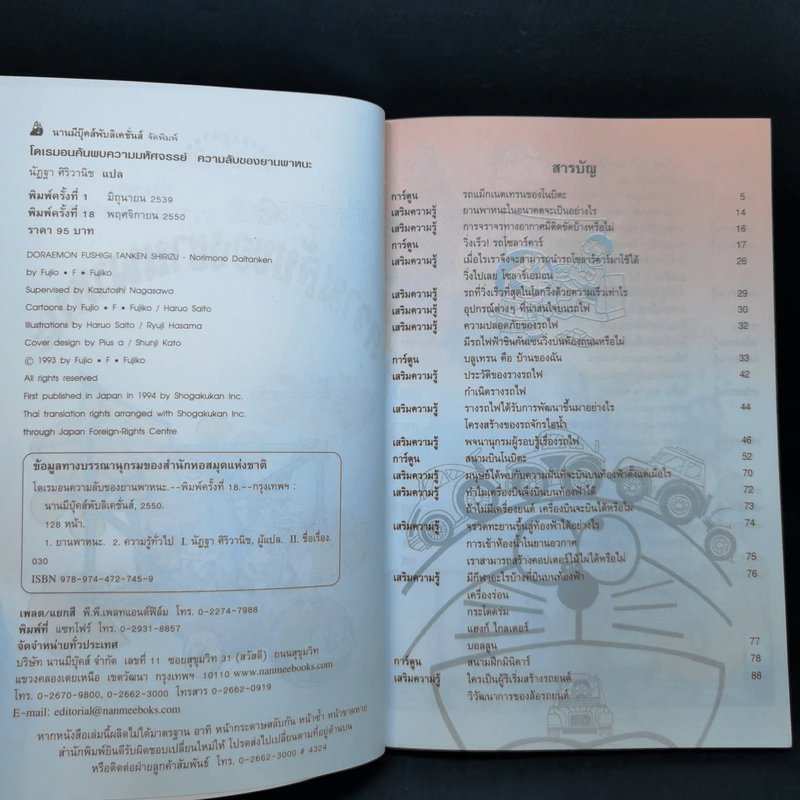 นานมีบุ๊คส์พับลิเคชั่นส์ จัดพิมพ์
โดเรมอนค้นพบความมหัศจรรย์ ความลับของยานพาหนะ
นัฏฐา ศิริวานิช แปล
พิมพ์ครั้งที่ 1 มิถุนายน 2539
พิมพ์ครั้งที่ 18 พฤศจิกายน 2550
ราคา 95 บาท
DORAEMON FUSHIGI TANKEN SHIRIZU - Norimono Daitanken
by Fujio • F • Fujiko
Supervised by Kazutoshi Nagasawa
Cartoons by Fujio • F • Fujiko / Haruo Saito
Illustrations by Haruo Saito / Ryuji Hasama
Cover design by Plus a / Shunji Kato
© 1993 by Fujio • F • Fujiko
All rights reserved
First published in Japan in 1994 by Shogakukan Inc.
Thai translation rights arranged with Shogakukan Inc.
through Japan Foreign-Rights Centre
ข้อมูลทางบรรณานุกรมของสำนักหอสมุดแห่งชาติ
โดเรมอนความลับของยานพาหนะ.--พิมพ์ครั้งที่ 18.--กรุงเทพฯ :
นานมีบุ๊คส์พับลิเคชั่นส์, 2550.
128 หน้า.
1. ยานพาหนะ. 2. ความรู้ทั่วไป I. นัฏฐา ศิริวานิช, ผู้แปล. II. ชื่อเรื่อง.
030
ISBN 978-974-472-745-9
เพลต/แยกสี พี.พี.เพลทแอนด์ฟิล์ม โทร. 0-2274-7988
พิมพ์ที่ แซทโฟร์ โทร. 0-2931-8857
จัดจำหน่ายทั่วประเทศ
บริษัท นานมีบุ๊คส์ จำกัด เลขที่ 11 ซอยสุขุมวิท 31 (สวัสดี) ถนนสุขุมวิท
แขวงคลองเตยเหนือ เขตวัฒนา กรุงเทพฯ 10110 www.nanmeebooks.com
โทร. 0-2670-9800, 0-2662-3000 โทรสาร 0-2662-0919
E-mail: editorial@nanmeebooks.com
หากหนังสือเล่มนี้ผลิตไม่ได้มาตรฐาน อาทิ หน้ากระดาษสลับกัน หน้าซ้ำ หน้าขาดหาย
สำนักพิมพ์ยินดีรับผิดชอบเปลี่ยนใหม่ให้ โปรดส่งไปเปลี่ยนตามที่อยู่ด้านบน
หรือติดต่อฝ่ายลูกค้าสัมพันธ์ โทร. 0-2662-3000 # 4324
สารบัญ
การ์ตูน รถแม็กเนตเทรนของโนบิตะ 5
เสริมความรู้ ยานพาหนะในอนาคตจะเป็นอย่างไร 14
เสริมความรู้ การจราจรทางอากาศมีติดขัดบ้างหรือไม่ 16
การ์ตูน วิ่งเร็ว! รถโซลาร์คาร์ 17
เสริมความรู้ เมื่อไรเราจึงจะสามารถนำรถโซลาร์คาร์มาใช้ได้ 26
วิ่งไปเลย โซลาร์เอมอน
เสริมความรู้ รถที่วิ่งเร็วที่สุดในโลกวิ่งด้วยความเร็วเท่าไร 29
เสริมความรู้ อุปกรณ์ต่างๆ ที่น่าสนใจบนรถไฟ 30
เสริมความรู้ ความปลอดภัยของรถไฟ 32
มีรถไฟฟ้าชินกันเซนวิ่งบนท้องถนนหรือไม่
การ์ตูน บลูเทรน คือ บ้านของฉัน 33
เสริมความรู้ ประวัติของรางรถไฟ 42
กำเนิดรางรถไฟ
เสริมความรู้ รางรถไฟได้รับการพัฒนาขึ้นมาอย่างไร 44
โครงสร้างของรถจักรไอน้ำ
เสริมความรู้ พจนานุกรมผู้รอบรู้เรื่องรถไฟ 46
การ์ตูน สนามบินโนบิตะ 52
เสริมความรู้ มนุษย์ได้พบกับความฝันที่จะบินบนท้องฟ้าตั้งแต่เมื่อไร 70
เสริมความรู้ ทำไมเครื่องบินจึงบินบนท้องฟ้าได้ 72
ถ้าไม่มีเครื่องยนต์ เครื่องบินจะบินได้หรือไม่ 73
เสริมความรู้ จรวดทะยานขึ้นสู่ท้องฟ้าได้อย่างไร 74
การเข้าห้องน้ำในยานอวกาศ
เราสามารถสร้างคอปเตอร์ไม้ไผ่ได้หรือไม่ 75
เสริมความรู้ มีกีฬาอะไรบ้างที่บินบนท้องฟ้า 76
เครื่องร่อน
กระโดดร่ม
แฮงก์ ไกลเดอร์
บอลลูน 77
การ์ตูน สนามฝึกมินิคาร์ 78
เสริมความรู้ ใครเป็นผู้ริเริ่มสร้างรถยนต์ 88
วิวัฒนาการของล้อรถยนต์